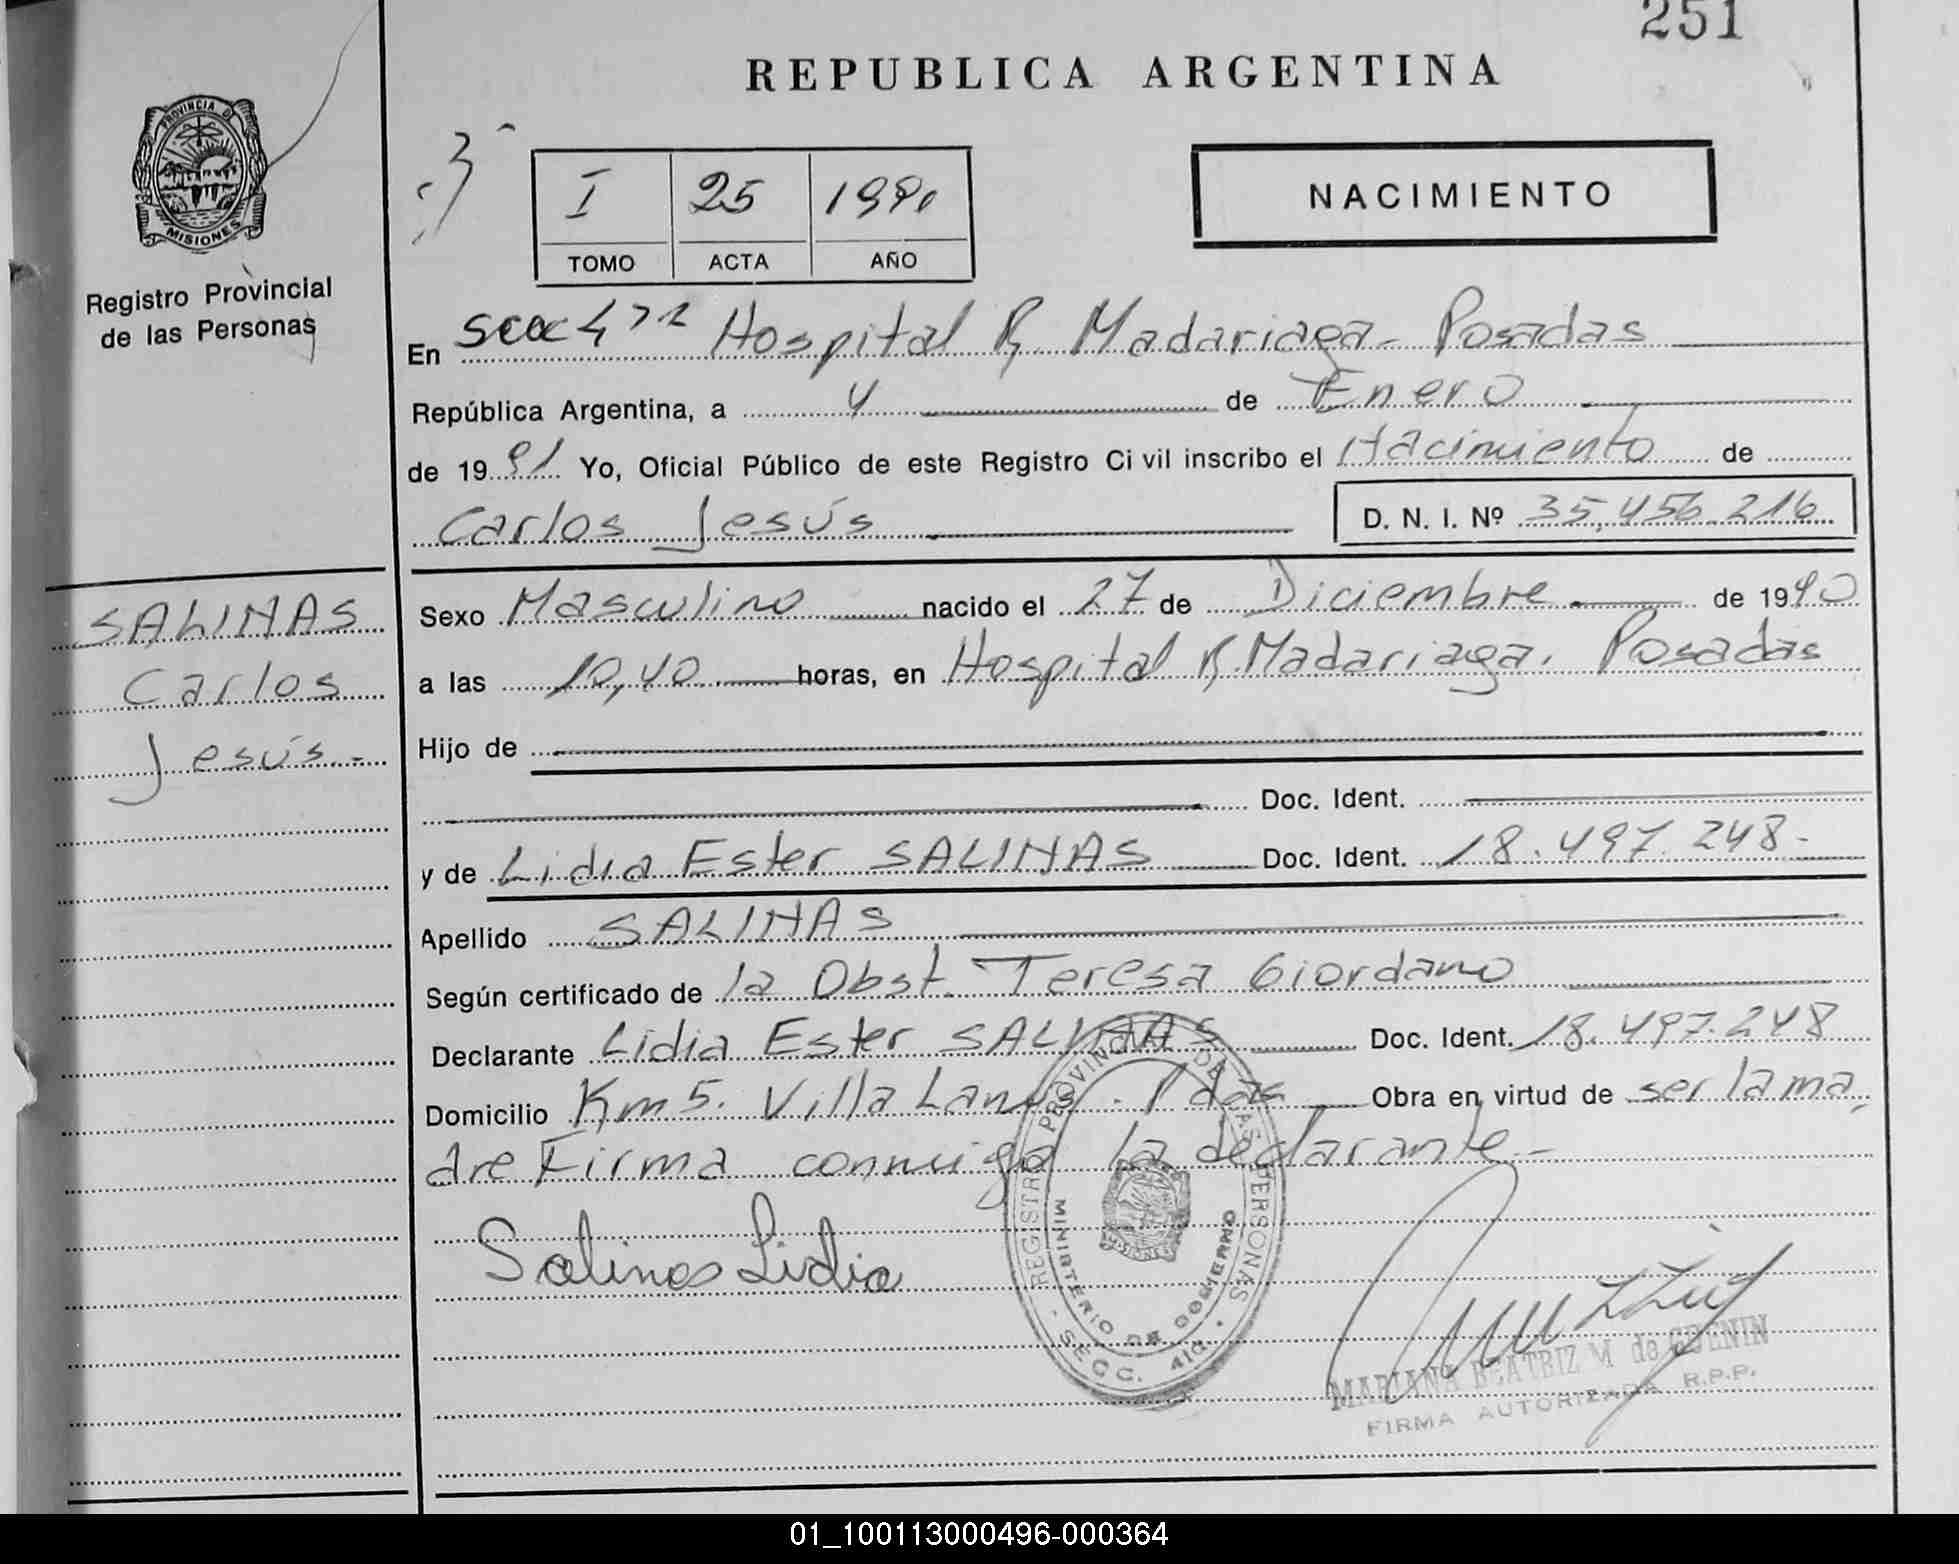 251
REPUBLICA ARGENTINA
PROVINCIA DE
MISIONES
Registro Provincial
de las Personas
I 25
TOMO ACTA AÑO
NACIMIENTO
En Hospital R. Madariaga - Posadas
República Argentina, a 4 de Enero
de 19 91 Yo, Oficial Público de este Registro Civil inscribo el Nacimiento de
Carlos Jesús D. N. I. Nº 35.456.216
SALINAS
Carlos
Jesús.-
Sexo Masculino nacido el 27 de Diciembre de 1990
a las 10,40 horas, en Hospital R. Madariaga. Posadas
Hijo de
Doc. Ident.
y de Lidia Ester SALINAS Doc. Ident. 18.497.248.-
Apellido SALINAS
Según certificado de la Obst. Teresa Giordano
Declarante Lidia Ester SALINAS Doc. Ident. 18.497.248
Domicilio Km 5. Villa Lanús. Pdas Obra en virtud de ser la ma
dre Firma conmigo la declarante.-
Salinas Lidia
REGISTRO PROVINCIAL DE LAS PERSONAS
MINISTERIO DE GOBIERNO
MISIONES
SECC.
MARIANA BEATRIZ M de
FIRMA AUTORIZADA R.P.P.
01_100113000496-000364